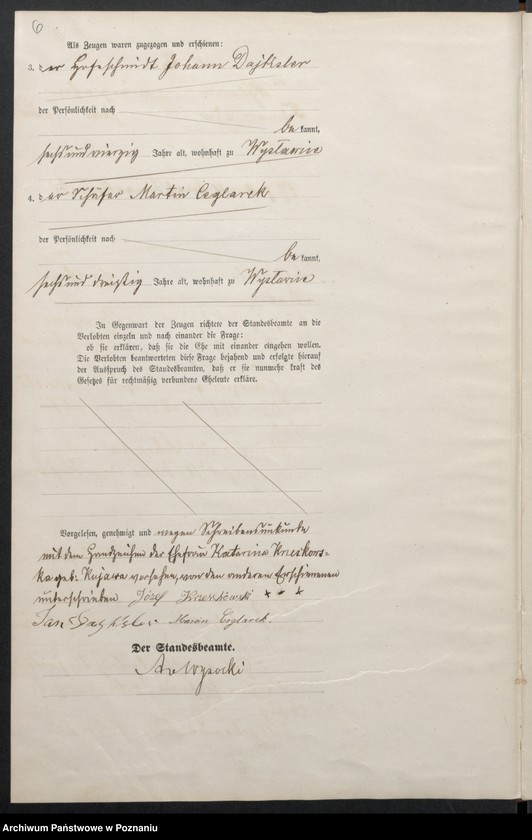 6
Als Zeugen waren zugezogen und erschienen:
3. der Hofschmidt Johann Dajksler
der Persönlichkeit nach
be kannt,
sechsundvierzig Jahre alt, wohnhaft zu Wyslawice
4. der Schäfer Martin Ceglarek
der Persönlichkeit nach
be kannt,
sechsunddreißig Jahre alt, wohnhaft zu Wyslawice
In Gegenwart der Zeugen richtete der Standesbeamte an die
Verlobten einzeln und nach einander die Frage:
ob sie erklären, daß sie die Ehe mit einander eingehen wollen.
Die Verlobten beantworteten diese Frage bejahend und erfolgte hierauf
der Ausspruch des Standesbeamten, daß er sie nunmehr kraft des
Gesetzes für rechtmäßig verbundene Eheleute erkläre.
Vorgelesen, genehmigt und wegen Schreibensunkunde
mit dem Handzeichen der Ehefrau Katarina
ka geb. Kujawa versehen, von den anderen Erschienenen
unterschrieben Józef + + +
Jan Marcin Ceglarek.
Der Standesbeamte.
v Wysocki
Archiwum Państwowe w Poznaniu